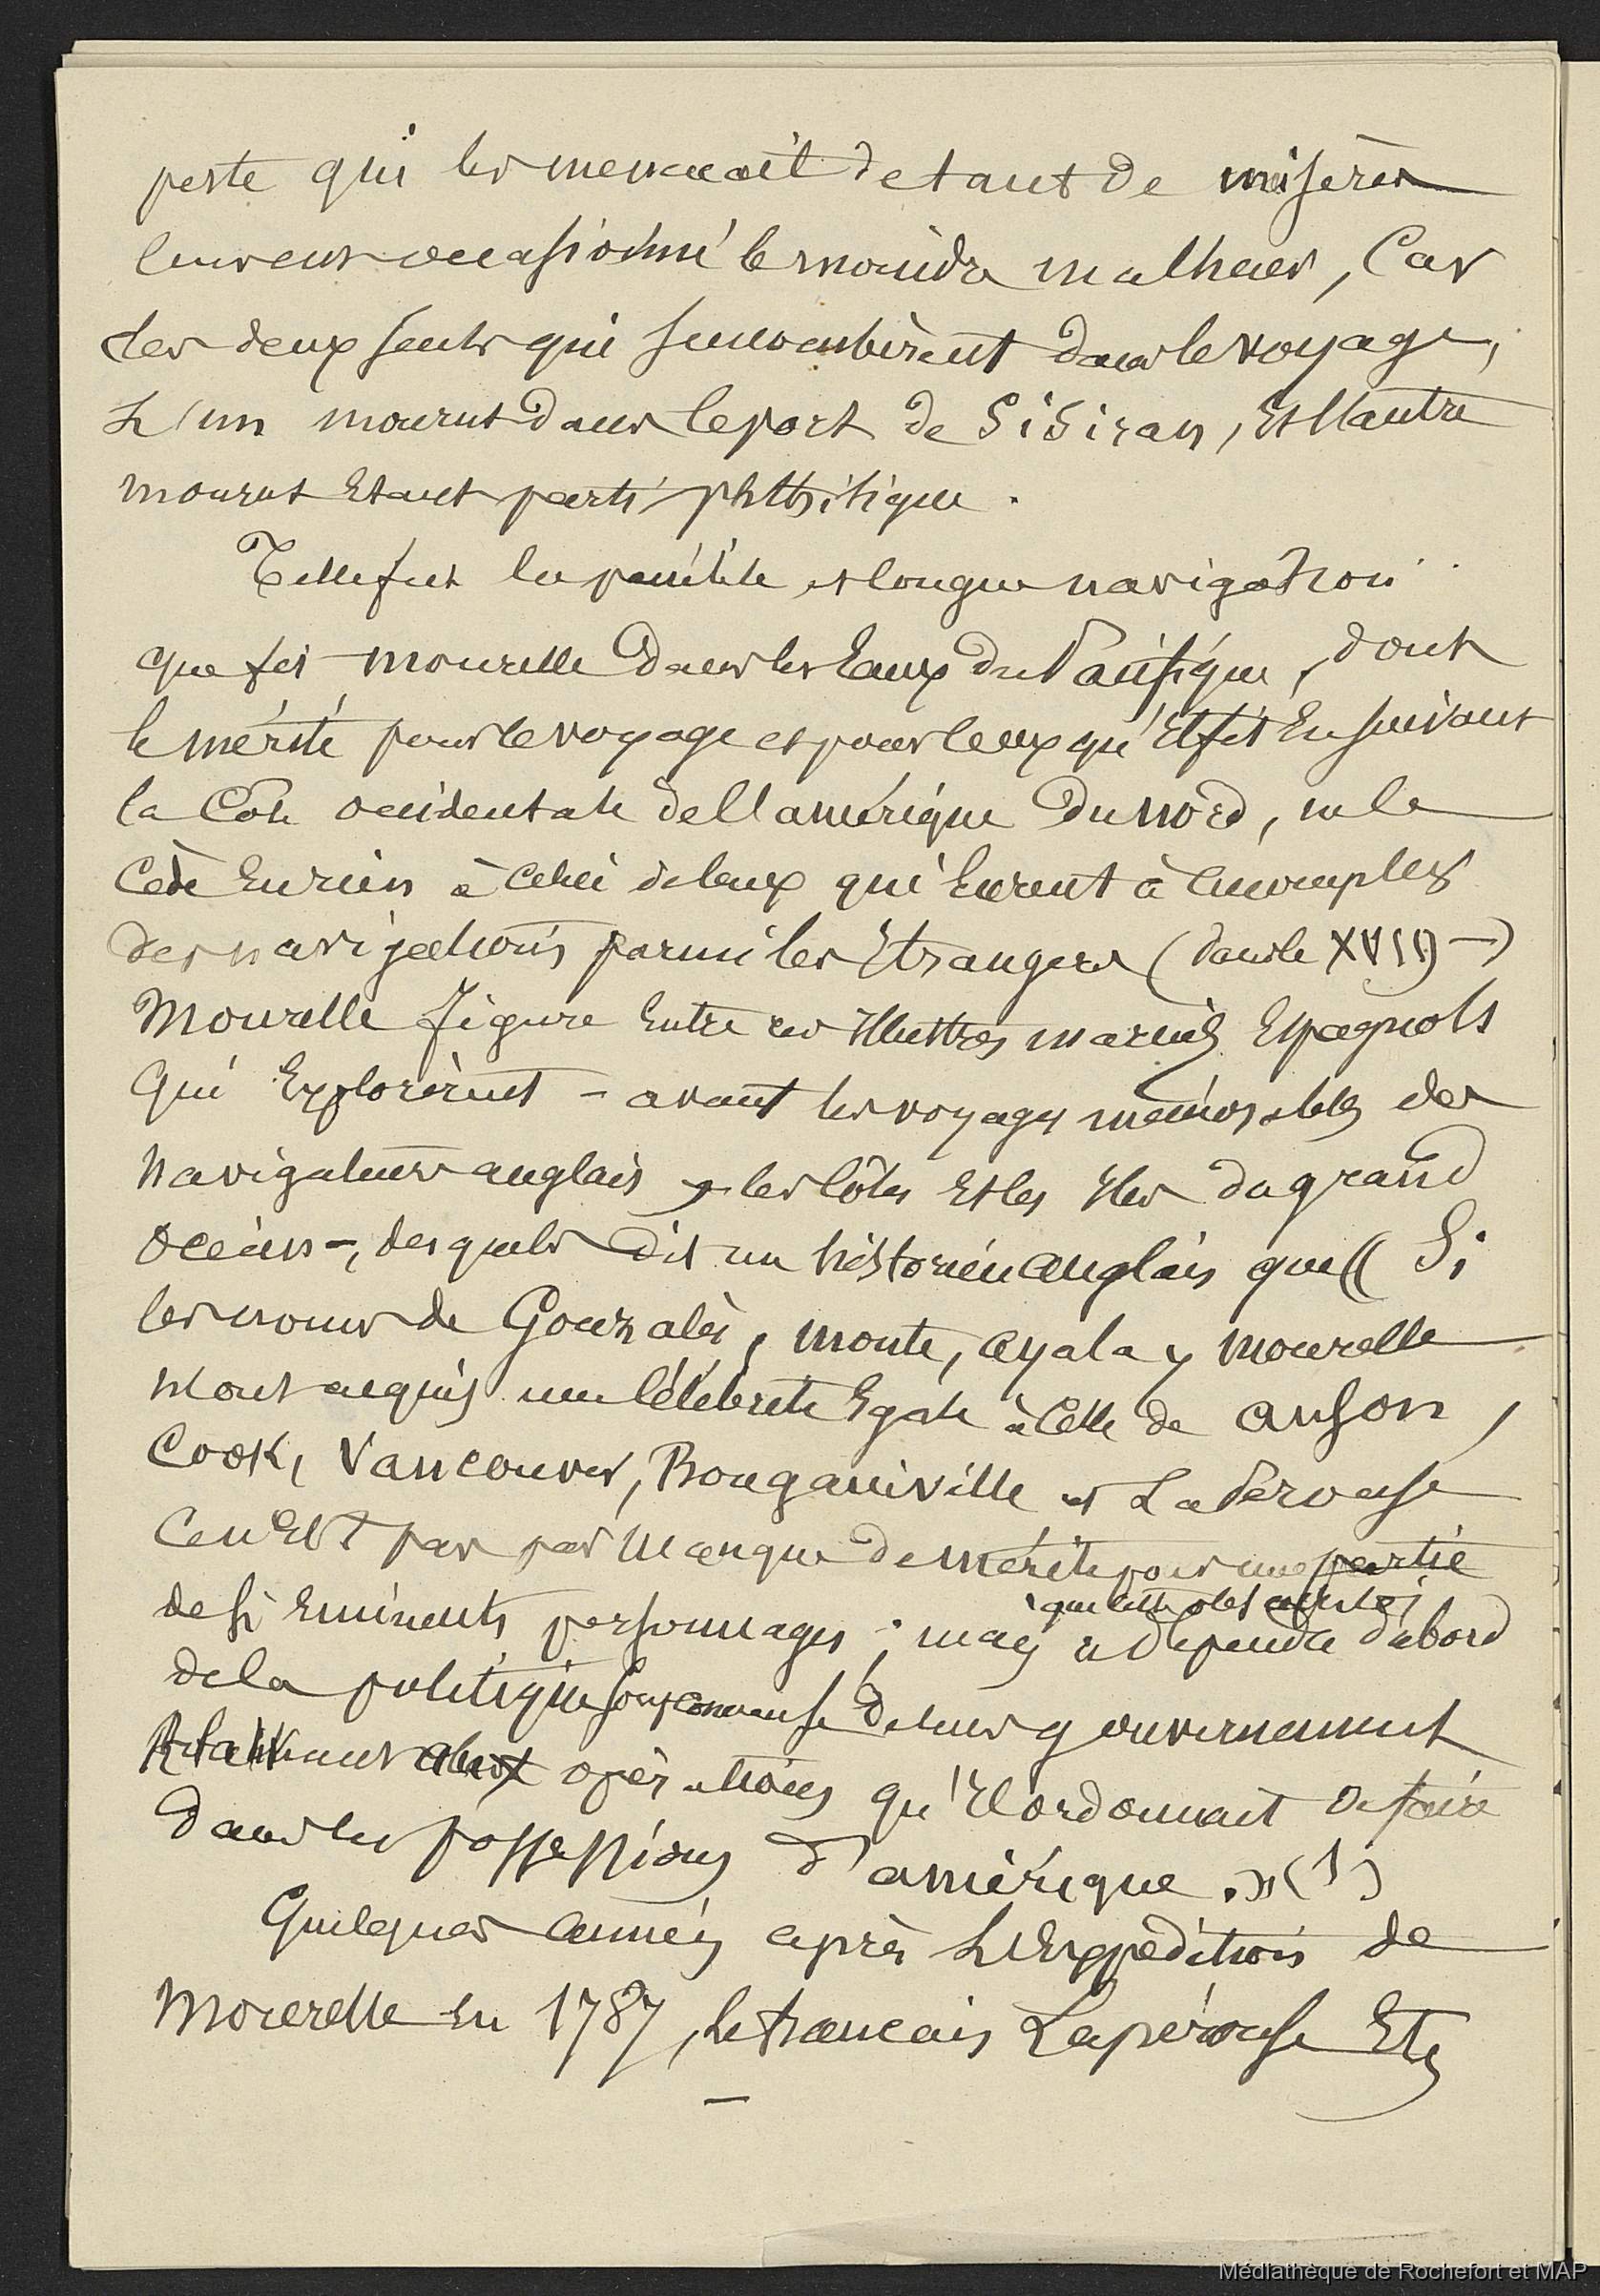 peste qui les menaçait de tant de misères
leur eut occasionné le moindre malheur, Car
des deux seuls qui succombèrent dans le voyage,
L'un mourut dans le port de Sisiran, Et l'autre
mourut Etant parti phthisique.
Telle fut la pénible et longue navigation
que fit Mourelle dans les Eaux du Pacifique, dont
le mérite pour le voyage et pour ceux qu'il fit En suivant
la Côte occidentale de l'amérique Du Nord, ne le
Cède En rien à Celui de Ceux qui Eurent à accomplir
des navigations parmi les Etrangers (dans le XVIII)
Mourelle figure Entre ces Illustres marins Espagnols
Qui Explorèrent – avant les voyages mémorables des
Navigateurs anglais les Côtes Et les Iles du grand
Océan –, desquels Dit un historien anglais que (( Si
les noms de Gonzalès, Monte, ayala y Mourelle
N'ont acquis une Célébrité Egale à Celle de anson,
Cook, Vancouver, Bougainville et La Perouse
Ce n'Est pas par Manque de mérite pour une partie
de si Eminents personnages ; mais a dépendu d'abord
de la politique soupçonneuse de leur gouvernement
opérations qu'Il ordonnait de faire
Dans les possessions d'amérique. )) (1)
Quelques années après L'Expédition de
Mourelle En 1787, le francais Lapérouse Et,
Médiathèque de Rochefort et MAP